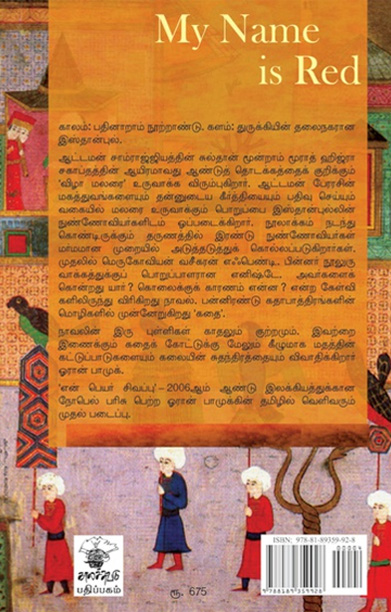 My Name
is Red
காலம்: பதினாறாம் நூற்றாண்டு. களம்: துருக்கியின் தலைநகரான
இஸ்தான்புல்.
ஆட்டமன் சாம்ராஜ்ஜியத்தின் சுல்தான் மூன்றாம் மூராத் ஹிஜ்ரா
சகாபதத்தின் ஆயிரமாவது ஆண்டுத் தொடக்கத்தைக் குறிக்கும்
'விழா மலரை' உருவாக்க விரும்புகிறார். ஆட்டமன் பேரரசின்
மகத்துவங்களையும் தன்னுடைய கீர்த்தியையும் பதிவு செய்யும்
வகையில் மலரை உருவாக்கும் பொறுப்பை இஸ்தான்புல்லின்
நுண்ணோவியர்களிடம் ஒப்படைக்கிறார். நூலாக்கம் நடந்து
கொண்டிருக்கும் தருணத்தில் இரண்டு நுண்ணோவியர்கள்
மர்மமான முறையில் அடுத்தடுத்துக் கொல்லப்படுகிறார்கள்.
முதலில் மெருகோவியன் வசீகரன் எஃப்பெண்டி. பின்னர் நூலுரு
வாக்கத்துக்குப் பொறுப்பாளரான எனிஷ்டே. அவர்களைக்
கொன்றது யார்? கொலைக்குக் காரணம் என்ன? என்ற கேள்வி
களிலிருந்து விரிகிறது நாவல். பன்னிரண்டு கதாபாத்திரங்களின்
மொழிகளில் முன்னேறுகிறது 'கதை'.
நாவலின் இரு புள்ளிகள் காதலும் குற்றமும். இவற்றை
இணைக்கும் கதைக் கோட்டுக்கு மேலும் கீழுமாக மதத்தின்
கட்டுப்பாடுகளையும் கலையின் சுதந்திரத்தையும் விவாதிக்கிறார்
ஓரான் பாமுக்.
'என் பெயர் சிவப்பு' – 2006ஆம் ஆண்டு இலக்கியத்துக்கான
நோபெல் பரிசு பெற்ற ஓரான் பாமுக்கின் தமிழில் வெளிவரும்
முதல் படைப்பு.
ISBN: 978-81-89359-92-8
00004
9 788189 359928
காலச்சுவடு
பதிப்பகம்
ரூ. 675